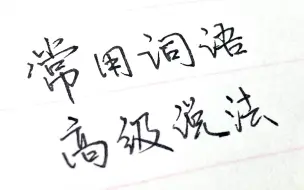 常用词语
高级说法